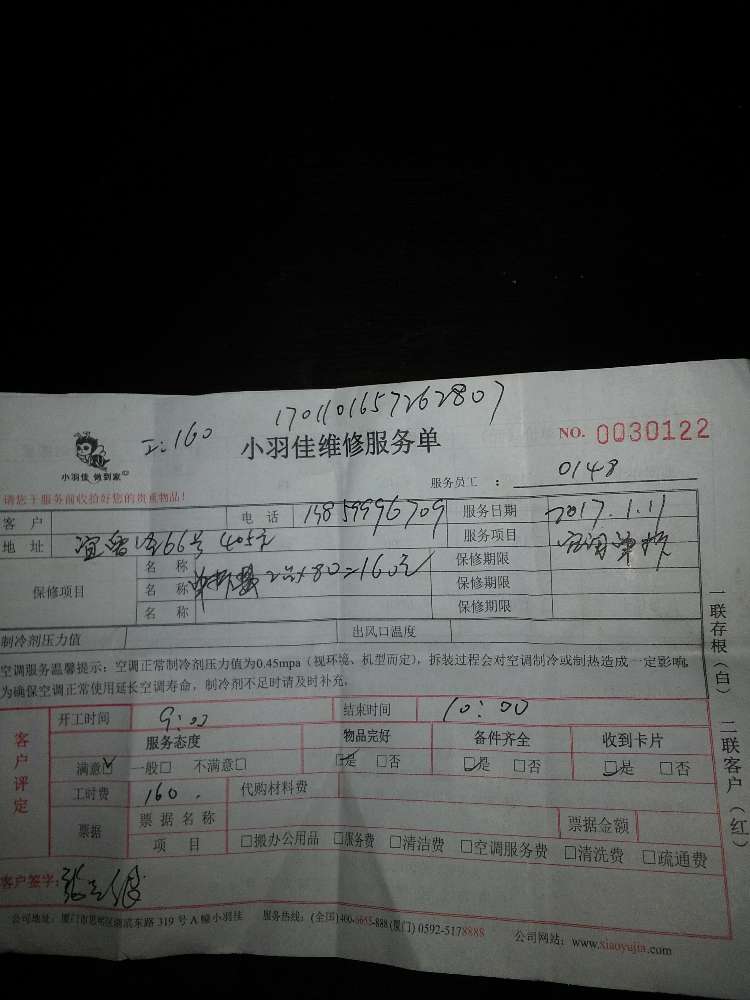 1701101657262807
工:160
小羽佳维修服务单
NO. 0030122
小羽佳 做到家
服务员工： 0148
请您于服务前收拾好您的贵重物品！
客户 电话 服务日期 2017.1.11
地址 66号 405 服务项目 空调
保修项目
名称 保修期限
名称 2台×80=160元 保修期限
名称 保修期限
制冷剂压力值 出风口温度
空调服务温馨提示：空调正常制冷剂压力值为0.45mpa（视环境、机型而定），拆装过程会对空调制冷或制热造成一定影响，
为确保空调正常使用延长空调寿命，制冷剂不足时请及时补充。
客户评定
开工时间 9:00 结束时间 10:00
服务态度 物品完好 备件齐全 收到卡片
满意☑ 一般□ 不满意□ ☑是 □否 ☑是 □否 ☑是 □否
工时费 160. 代购材料费
票据 票据名称 票据金额
项目 □搬办公用品 □服务费 □清洁费 □空调服务费 □清洗费 □疏通费
客户签字：
公司地址：厦门市思明区湖滨东路 319 号 A 幢小羽佳 服务热线：(全国)400-6655-888 (厦门) 0592-5178888 公司网站：www.xiaoyujia.com
一联存根（白） 二联客户（红）